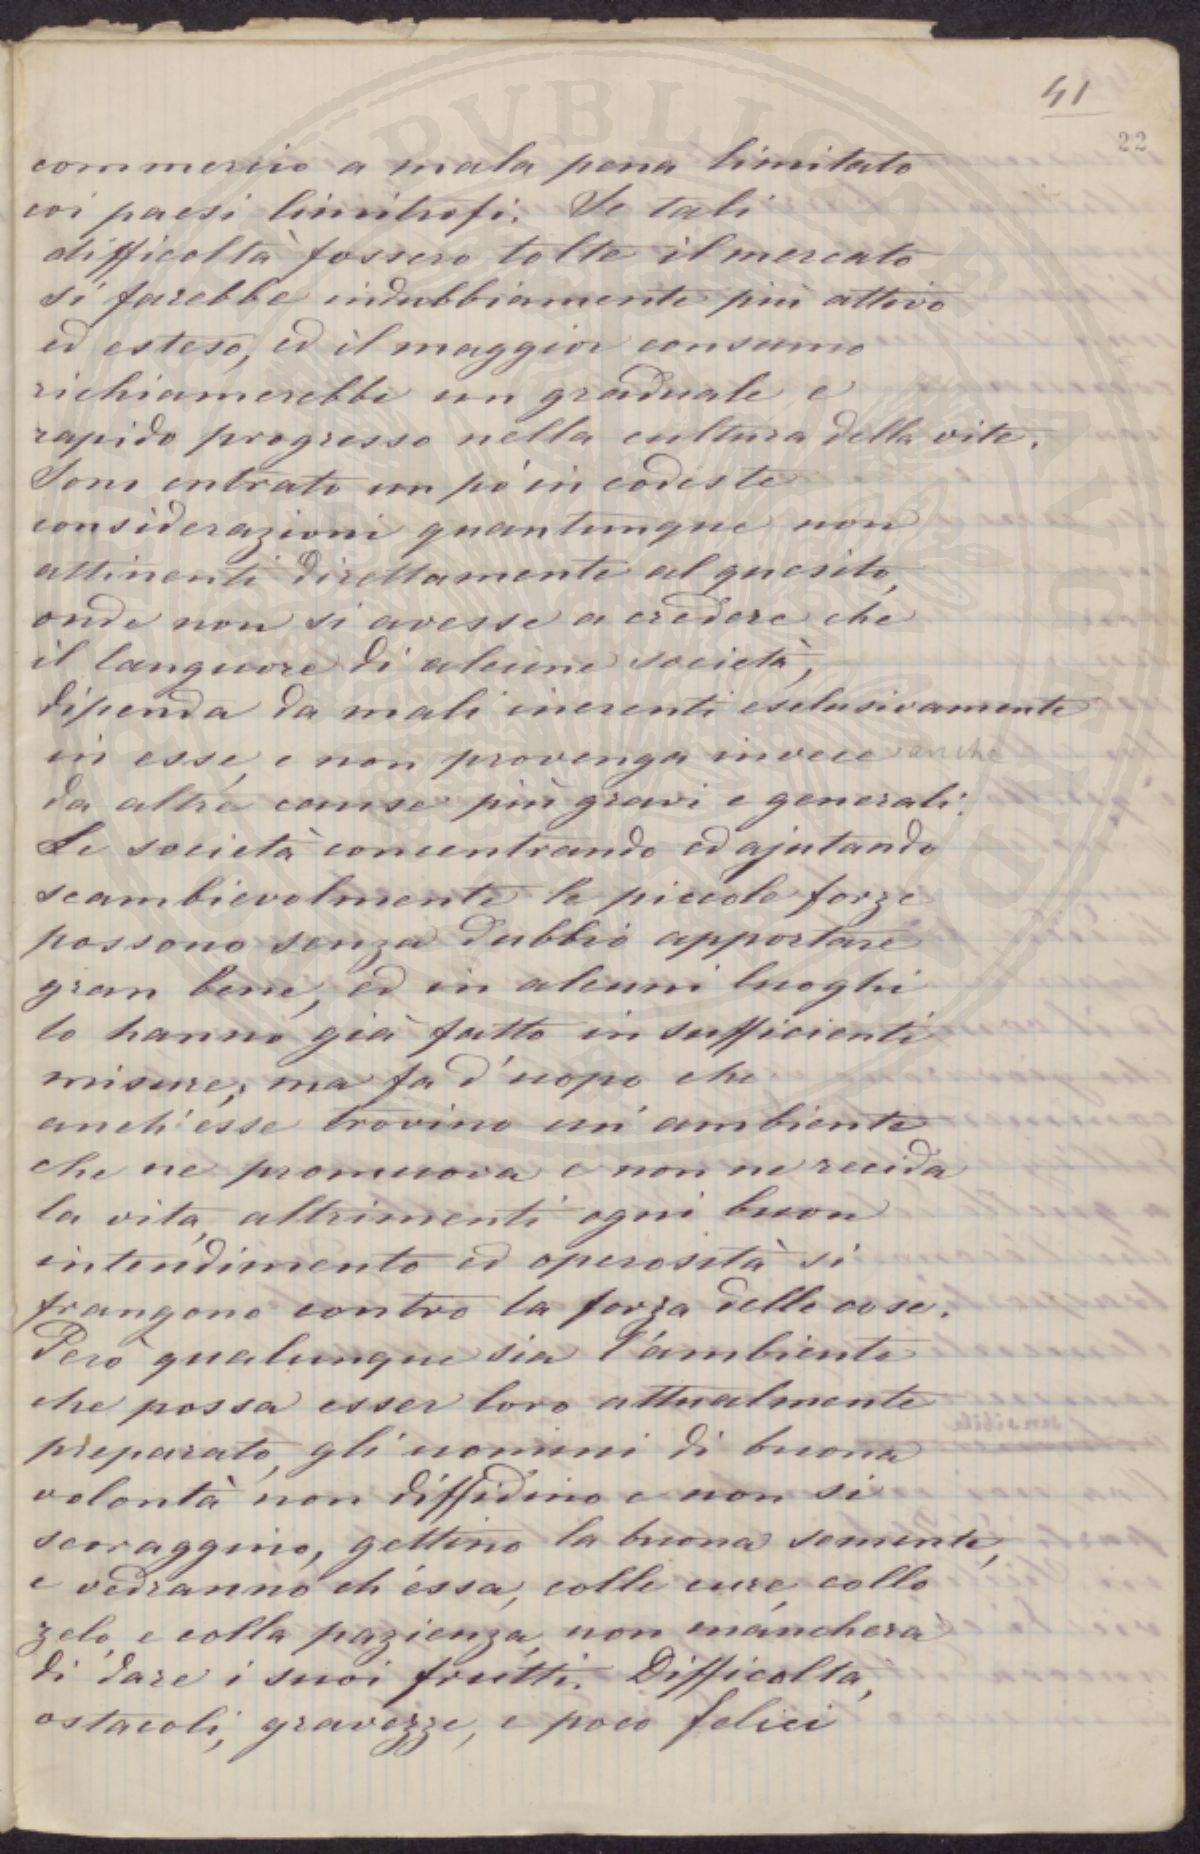 41
22
commercio a mala pena limitato
coi paesi limitrofi. Se tali
difficoltà fossero tolte il mercato
si farebbe indubbiamente più attivo
ed esteso, ed il maggior consumo
richiamerebbe un graduale e
rapido progresso nella cultura della vite.
Sono entrato un pó in codeste
considerazioni quantunque non
attinenti direttamente al quesito,
onde non si avesse a credere che
il languore di alcune società,
dipenda da mali inerenti esclusivamente
in esse, e non provenga invece anche
da altre cause più gravi e generali.
Le società concentrando ed ajutando
scambievolmente le piccole forze
possono senza dubbio apportare
gran bene, ed in alcuni luoghi
lo hanno già fatto in sufficienti
misure; ma fa d'uopo che
anch'esse trovino un'ambiente
che ne promuova e non ne recida
la vita, altrimenti ogni buon
intendimento ed operosità si
frangono contro la forza delle cose.
Però qualunque sia l'ambiente
che possa esser loro attualmente
preparato, gli uomini di buona
volontà non diffidino e non si
scoraggino, gettino la buona semente,
e vedranno ch'essa, colle cure, collo
zelo, e colla pazienza, non mancherà
di dare i suoi frutti. Difficoltà,
ostacoli, gravezze, e poco felici